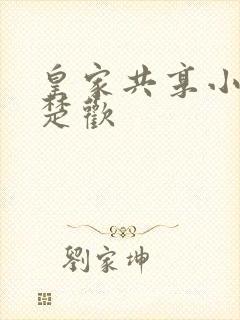 皇家共享小
楚歡
劉家坤